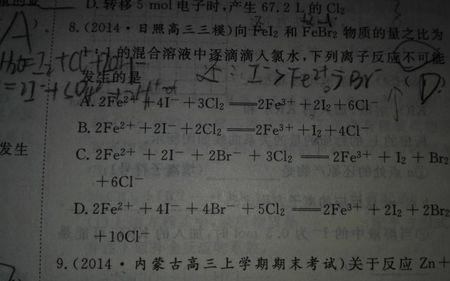 D.转移5 mol电子时,产生67.2 L的Cl₂
8.(2014·日照高三三模)向FeI₂和FeBr₂物质的量之比为
1:1的混合溶液中逐滴滴入氯水,下列离子反应不可能
发生的是
还: I⁻>Fe²⁺>Br⁻
(D)
A. 2Fe²⁺+4I⁻+3Cl₂══2Fe³⁺+2I₂+6Cl⁻
B. 2Fe²⁺+2I⁻+2Cl₂══2Fe³⁺+I₂+4Cl⁻
C. 2Fe²⁺+2I⁻+2Br⁻+3Cl₂══2Fe³⁺+I₂+Br₂
+6Cl⁻
D. 2Fe²⁺+4I⁻+4Br⁻+5Cl₂══2Fe³⁺+2I₂+2Br₂
+10Cl⁻
9.(2014·内蒙古高三上学期期末考试)关于反应 Zn+
发生